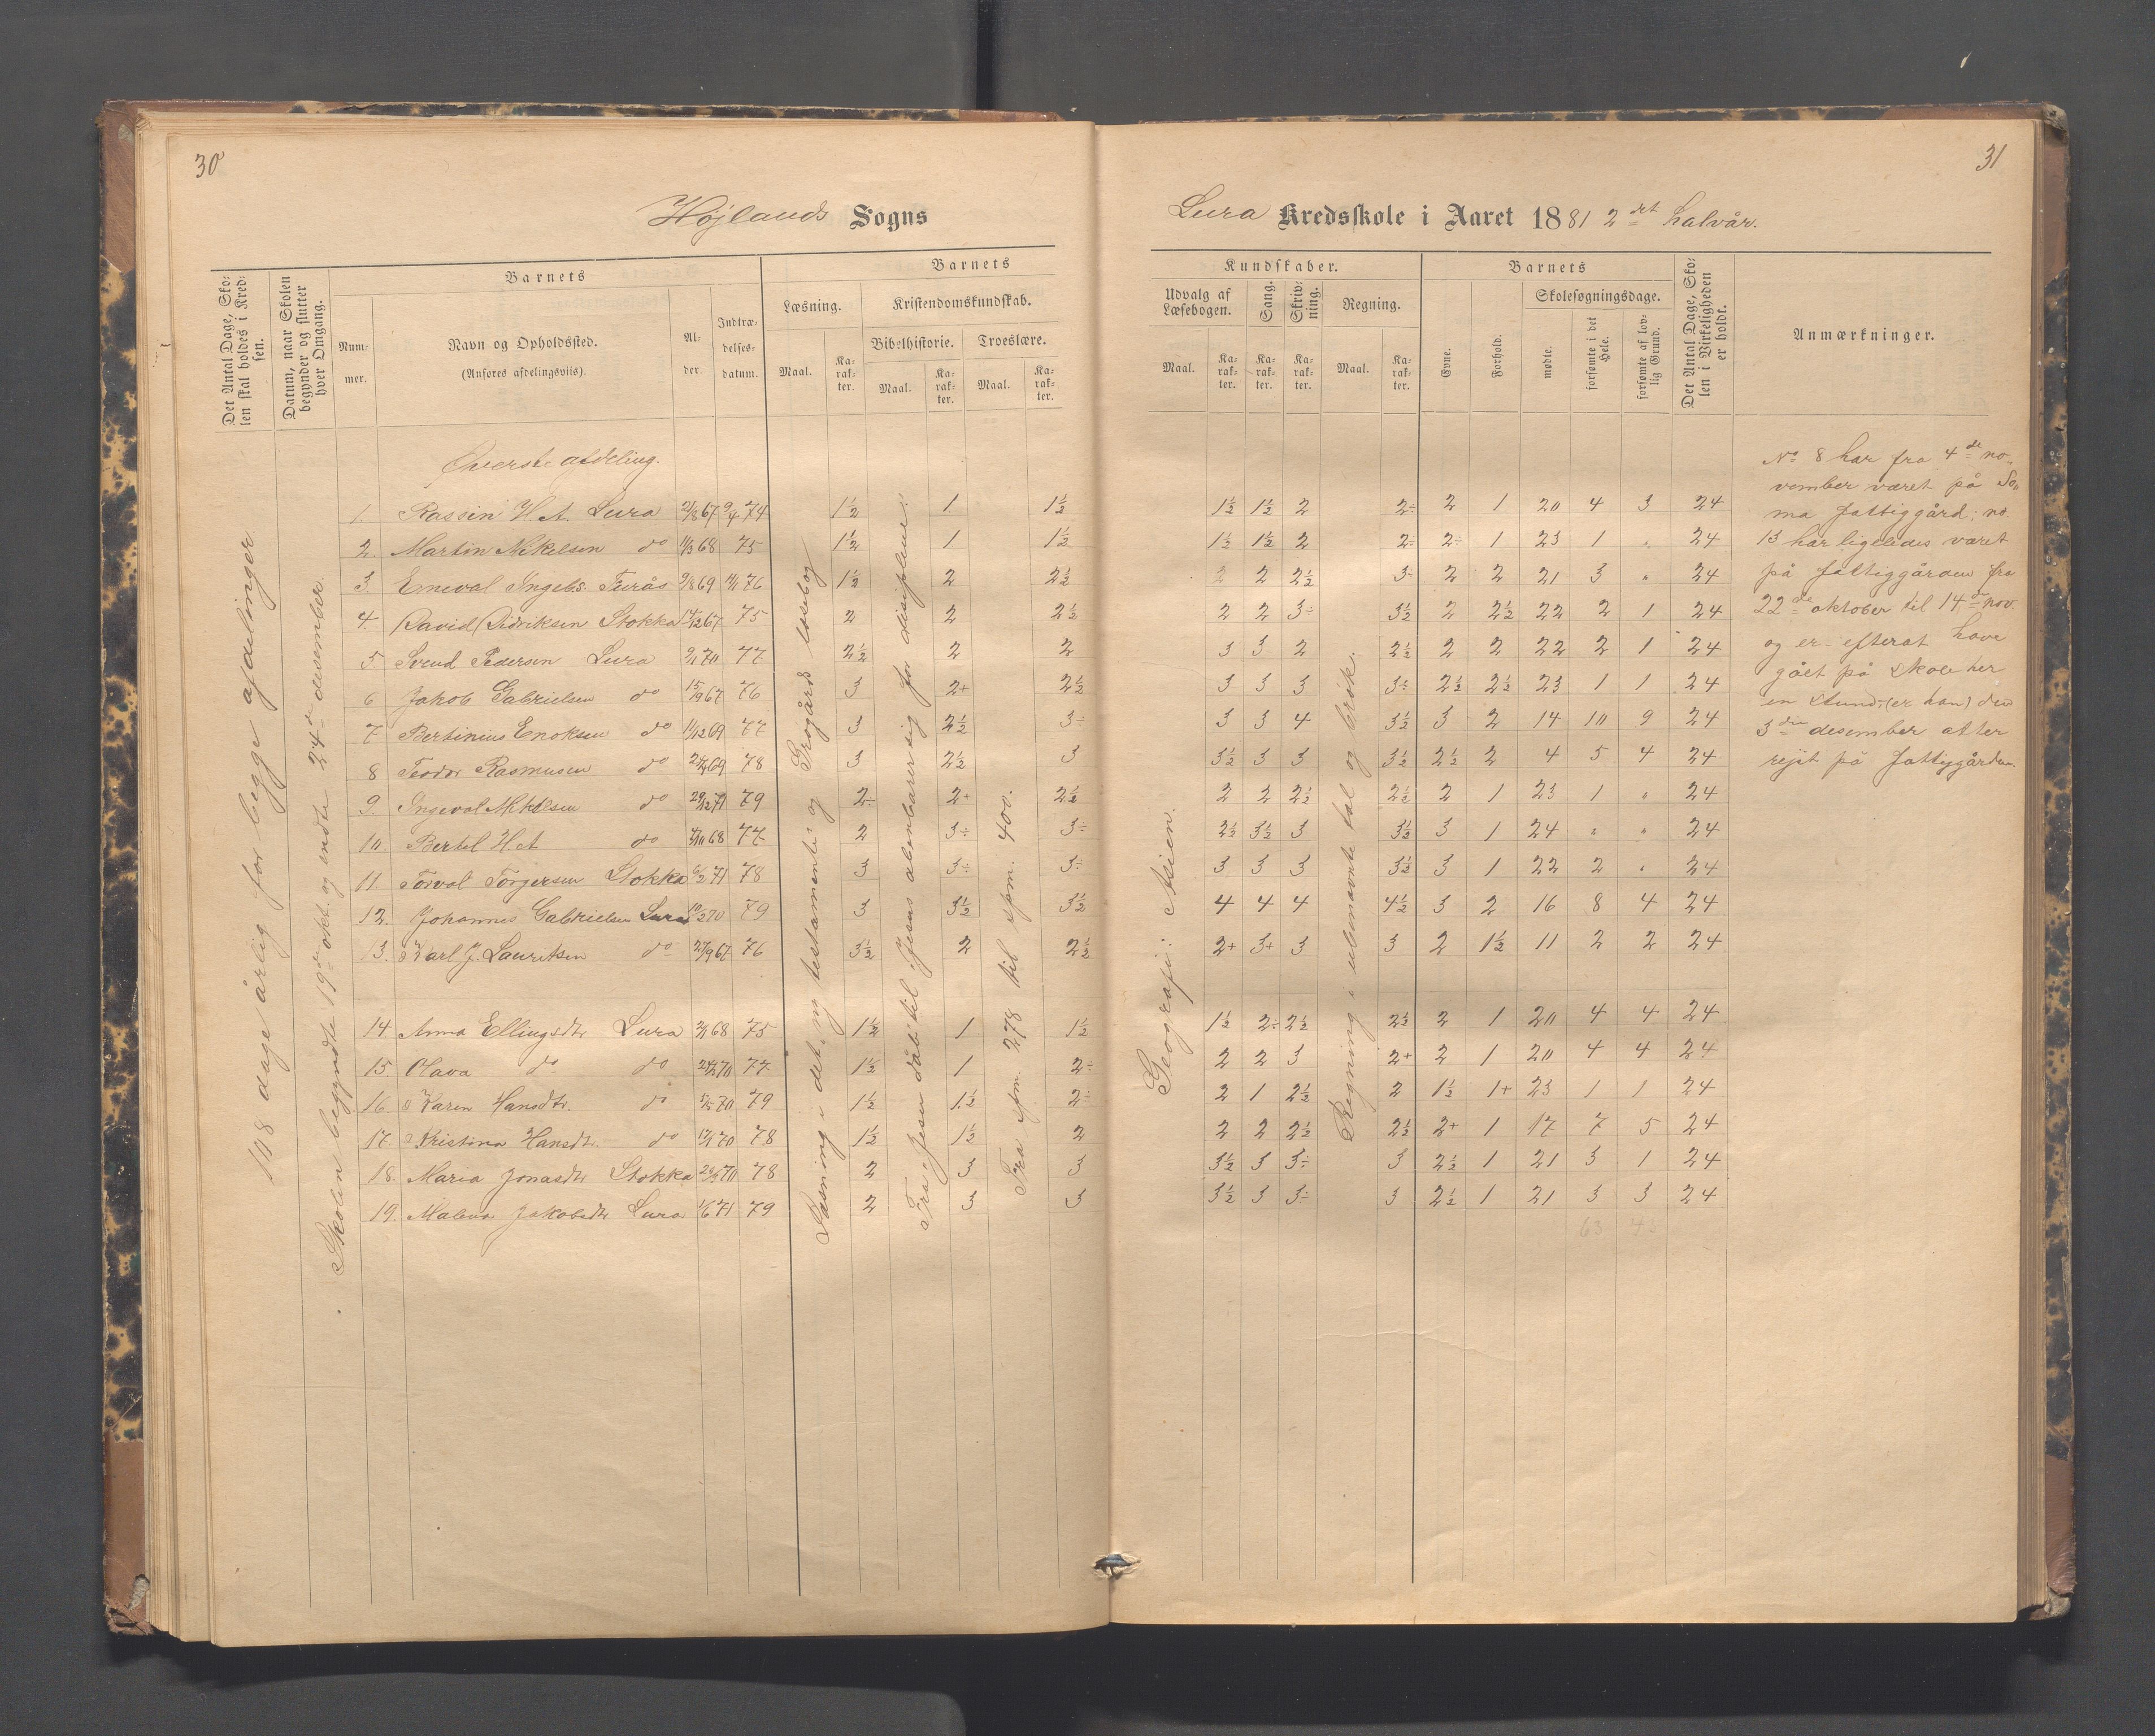 30
Højlands Sogns
Det Antal Dage, Skolen skal holdes i Kredsen.
Datum, naar Skolen begynder og slutter hver Omgang.
Barnets
Nummer.
Navn og Opholdssted.
(Anføres afdelingsviis).
Alder.
Indtrædelsesdatum.
Barnets
Læsning.
Maal.
Karakter.
Kristendomskundskab.
Bibelhistorie.
Maal.
Karakter.
Troeslære.
Maal.
Karakter.
108 dage årlig for begge afdelinger.
Skolen begyndte 19de okt. og endte 24de desember.
Læsning i det ny testamente og Grogårds læsebog
Fra "Jesu dåb" til "Jesus åbenbarer sig for disiplene".
Fra spm. 278 til spm. 400.
Øverste afdeling.
1. Rassin H. A. Lura 21/8 67 9/4 74 1½ 1 1½
2. Martin Mikelsen do 11/3 68 75 1½ 1 1½
3. Emeval Ingebs. Furås 9/8 69 76 1½ 2 2½
4. David Didriksen Stokka 14/12 67 75 2 2 2½
5 Svend Pedersen Lura 9/1 70 77 2½ 2 2
6 Jakob Gabrielsen do 15/9 67 76 3 2+ 2½
7 Bertinius Enoksen do 11/12 69 77 3 2½ 3÷
8 Teodor Rasmusen do 69 78 3 2½ 3
9. Ingeval Mikelsen do 29/12 71 79 2÷ 2+ 2½
10. Bertel H. A. do 68 77 2 3÷ 3÷
11. Torval Torgersen Stokka 71 78 3 3÷ 3÷
12. Johannes Gabrielsen Lura 70 79 3 3½ 3½
13. Karl J. Lauritsen do 27/9 67 76 3½ 2 2½
14 Anna Ellingsdtr Lura 68 75 1½ 1 1½
15. Olava do do 70 77 1½ 1 2÷
16 Karen Hansdtr. do 70 79 1½ 1½ 2÷
17. Kristina Hansdtr. do 70 78 1½ 1½ 2
18. Maria Jonasdtr Stokka 70 78 2 3 3
19. Malena Jakobsdtr Lura 1/6 71 79 2 3 3
31
Lura Kredsskole i Aaret 1881 2det halvår.
Kundskaber.
Udvalg af Læsebogen.
Maal.
Karakter.
Sang.
Karakter.
Skrivning.
Karakter.
Regning.
Maal.
Karakter.
Barnets
Evne.
Forhold.
Skolesøgningsdage.
mødte.
forsømte i det Hele.
forsømte af lovlig Grund.
Det Antal Dage, Skolen i Virkeligheden er holdt.
Anmærkninger.
Geografi: Asien.
Regning i ubenævnte tal og brøk.
1½ 1½ 2 2÷ 2 1 20 4 3 24
1½ 1½ 2 2÷ 2÷ 1 23 1 " 24
2 2 2½ 3÷ 2 2 21 3 " 24
2 2 3÷ 3½ 2 2½ 22 2 1 24
3 3 2 2½ 2 2 22 2 1 24
3 3 3 3÷ 2½ 2½ 23 1 1 24
3 3 4 3½ 3 2 14 10 9 24
3½ 3 3 3½ 2½ 2 4 5 4 24
2 2 2½ 2½ 2 1 23 1 " 24
2½ 3½ 3 3½ 3 1 24 " " 24
3 3 3 3½ 3 1 22 2 " 24
4 4 4 4½ 3 2 16 8 4 24
2+ 3+ 3 3 2 1½ 11 2 2 24
1½ 2÷ 2½ 2½ 2 1 20 4 4 24
2 2 3 2+ 2 1 20 4 4 24
2 1 2½ 2 1½ 1+ 23 1 1 24
2 2 2½ 2½ 2+ 1 17 7 5 24
3½ 3 3÷ 3 2½ 1 21 3 1 24
3½ 3 3÷ 3 2½ 1 21 3 3 24
63
No 8 har fra 4de no-
vember været på So-
ma Fattiggård; no.
13 har ligeledes været
på Fattiggården fra
22de oktober til 14de nov.
og er efterat have
gået på skole her
en stund, (er han) den
3die desember atter
rejst på Fattiggården.